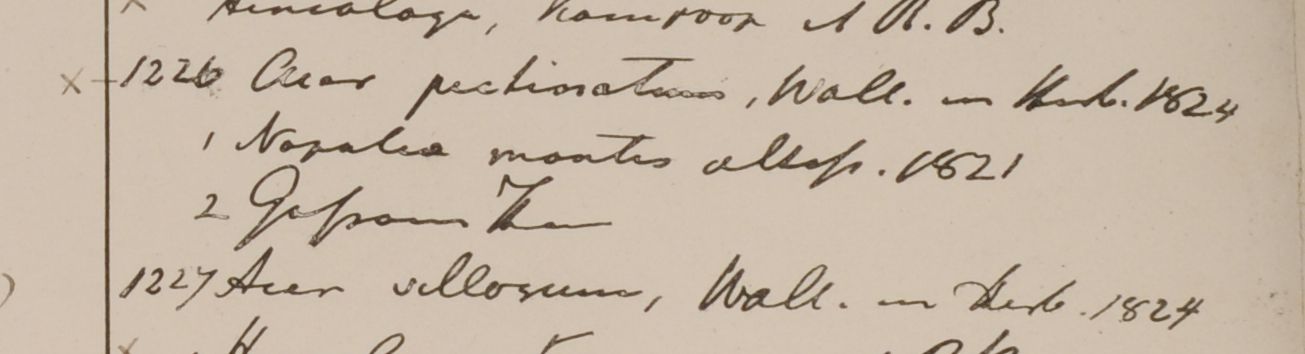 Himalaya, Kamroop A R. B.
1226 Acer pectinatum, Wall. in Herb. 1824
1 Napalia montes altiss. 1821
2 Gossain Than
1227 Acer villosum, Wall. in Herb. 1824